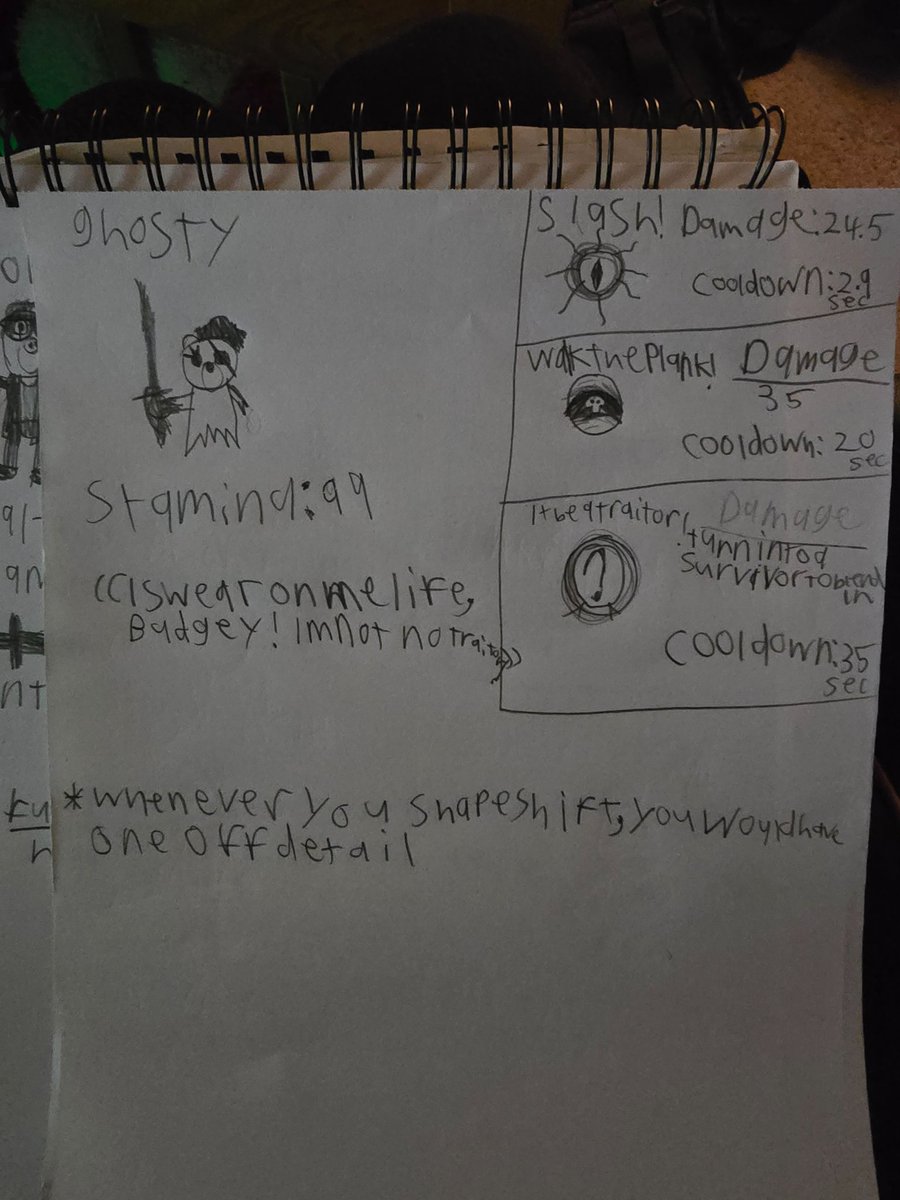 ghosty
Stamina:99
((I swear on me life,
Badgey! Im not no traitor))
Slash! Damage:24.5
cooldown:2.9
sec
walk the Plank! Damage
35
cooldown:20
sec
It be a traitor! Damage
turn into a
survivor to blend
in
cooldown:35
sec
*whenever you shapeshift, you would have
one off detail